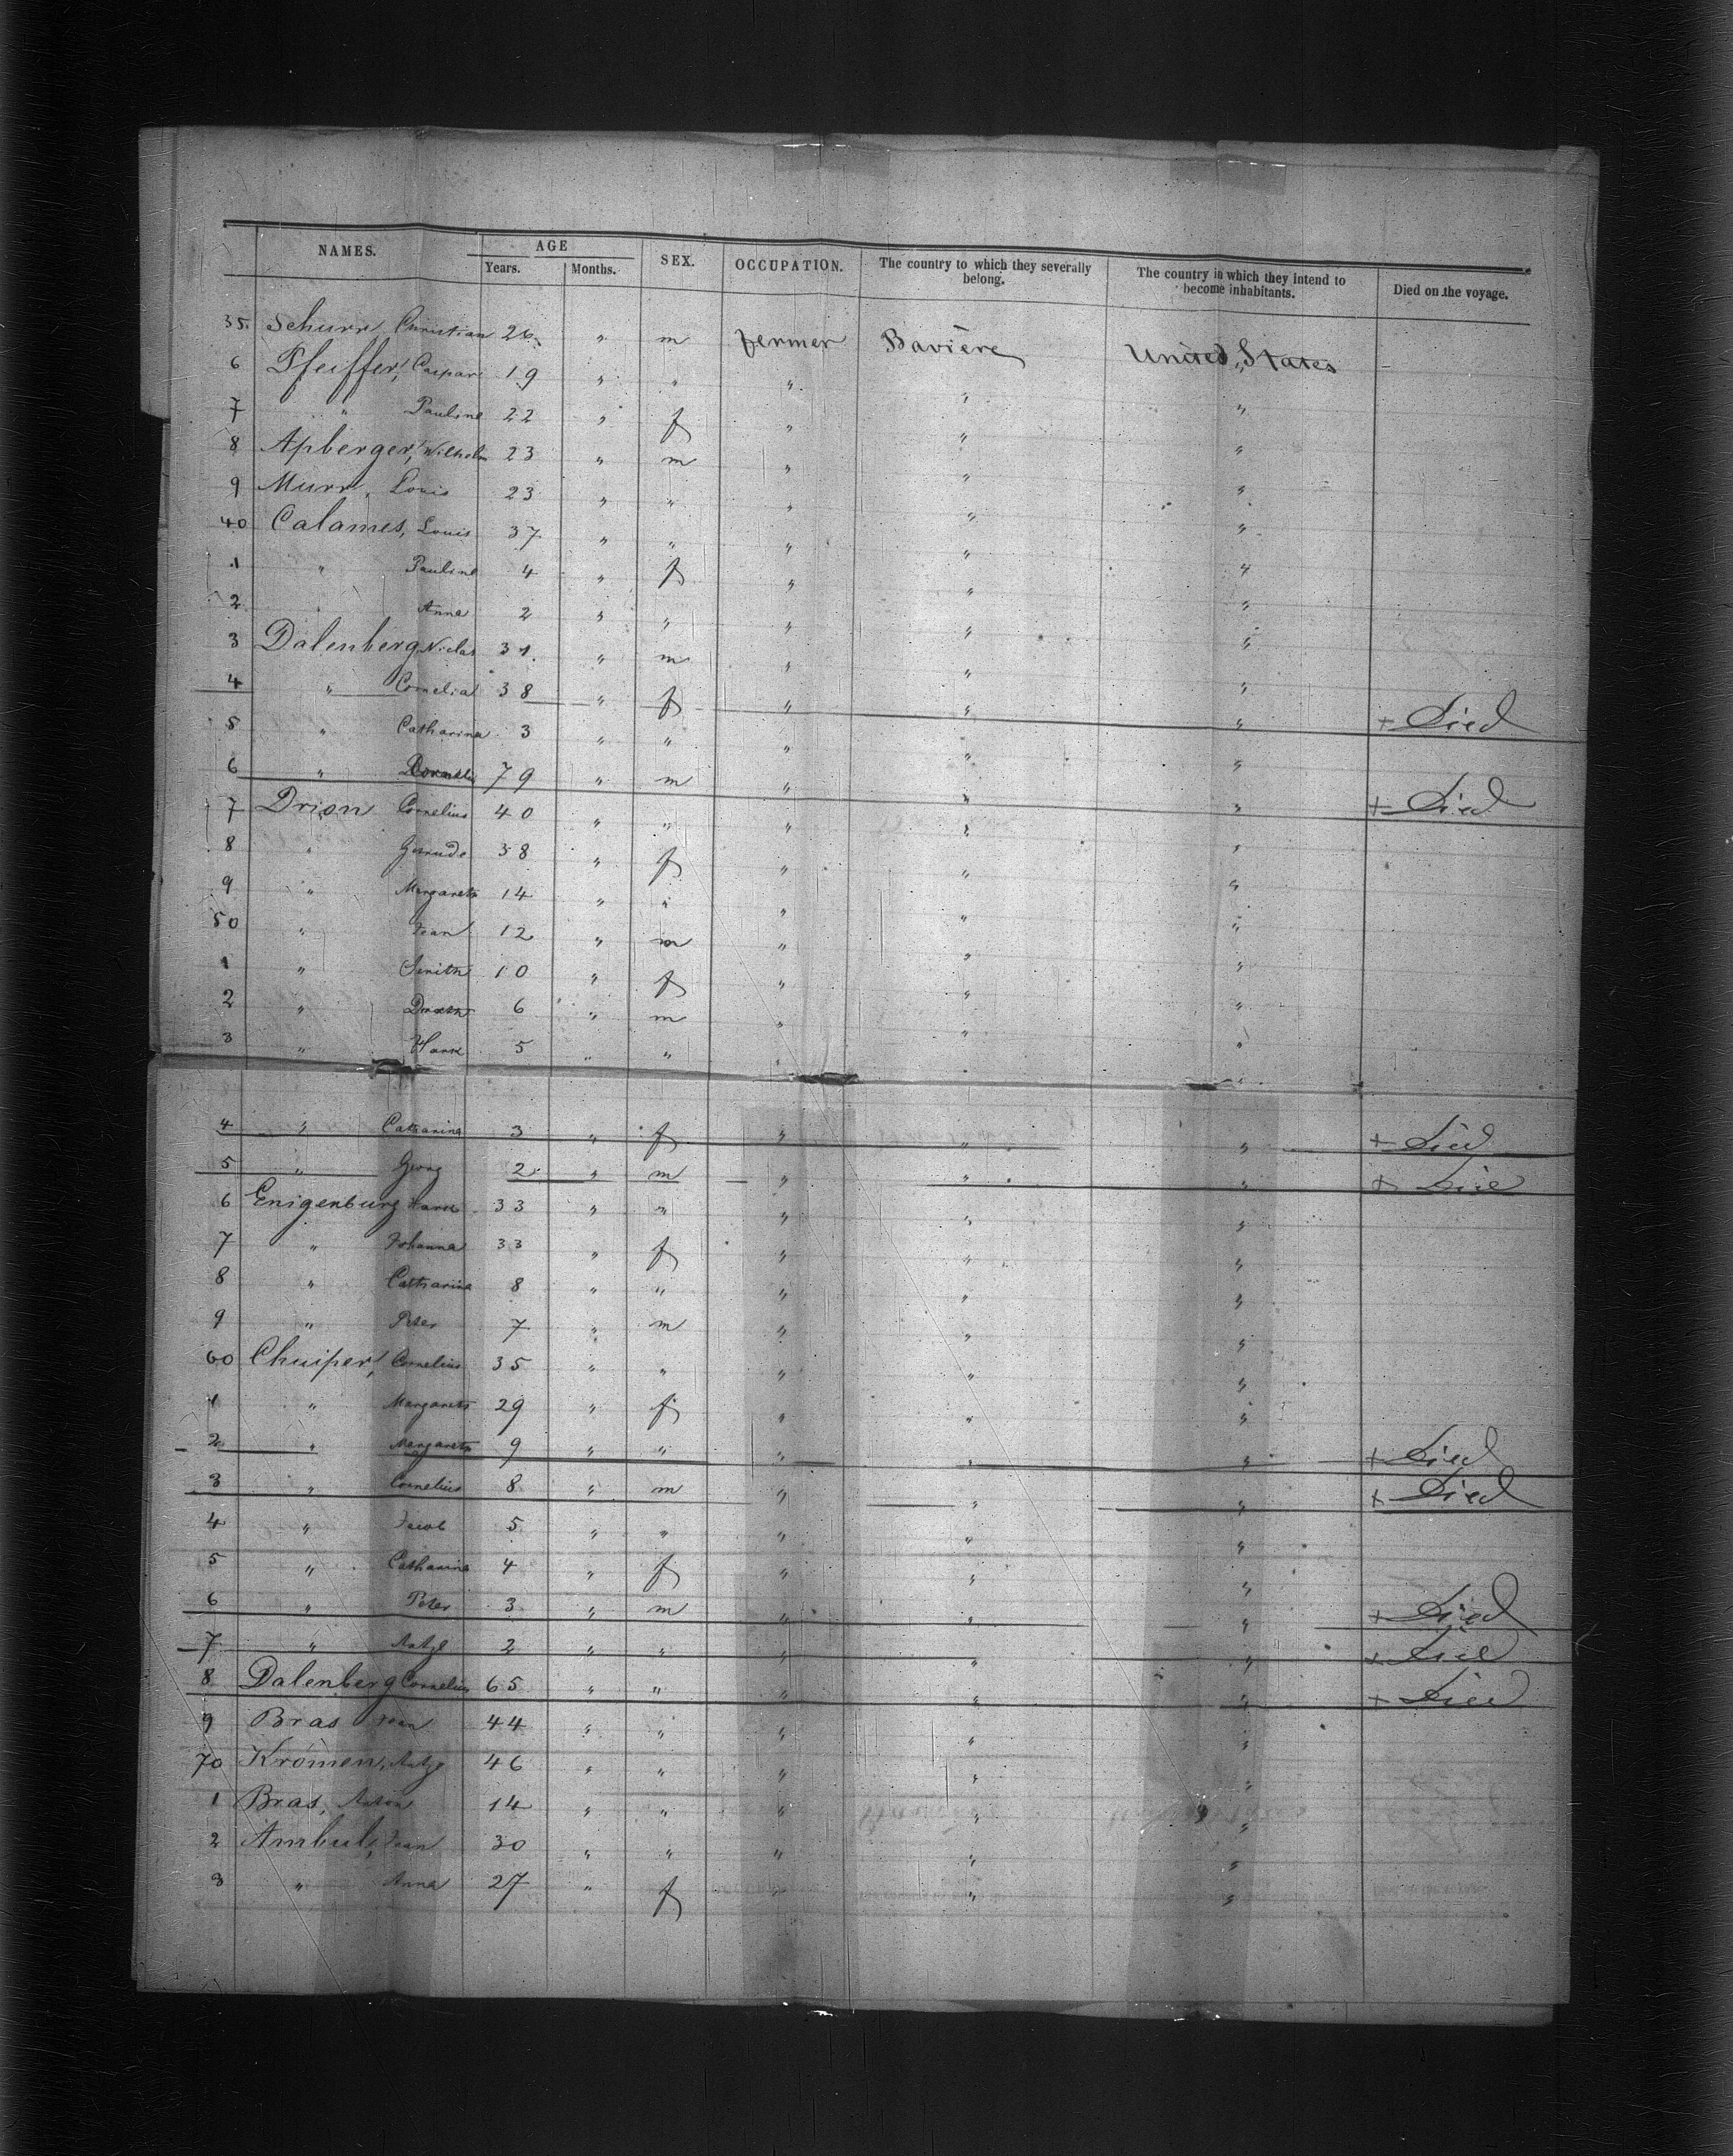 NAMES. AGE SEX. OCCUPATION. The country to which they severally belong. The country in which they intend to become inhabitants. Died on the voyage.
Years. Months.
35. Schurr, Christian 26 " m fermer Bavière United States
6 Pfeiffer, Caspar 19 " " " " "
7 " Pauline 22 " f " " "
8 Apberger, Wilhelm 23 " m " " "
9 Murr, Louis 23 " " " " "
40 Calames, Louis 37 " " " " "
1 " Pauline 4 " f " " "
2 " Anna 2 " " " " "
3 Dalenberg Niclas 31 " m " " "
4 " Cornelia 38 " f " " " + Died
5 " Catharina 3 " " " " "
6 " 79 " m " " " + Died
7 Drion Cornelius 40 " " " " "
8 " Gerrude 38 " f " " "
9 " Margareta 14 " " " " "
50 " Jean 12 " m " " "
1 " 10 " f " " "
2 " 6 " m " " "
3 " 5 " " " " "
4 " Catharina 3 " f " " " + Died
5 " Georg 2 " m " " " + Died
6 Enigenburg 33 " " " " "
7 " Johanna 33 " f " " "
8 " Catharina 8 " " " " "
9 " Peter 7 " m " " "
60 Chuiper, Cornelius 35 " " " " "
1 " Margareta 29 " f " " "
2 " Margareta 9 " " " " " + Died
3 " Cornelius 8 " m " " " + Died
4 " Jacob 5 " " " " "
5 " Catharina 4 " f " " "
6 " Peter 3 " m " " " + Died
7 " Antje 2 " " " " " + Died
8 Dalenberg Cornelius 65 " " " " " + Died
9 Bras Jean 44 " " " " "
70 Kromen, Antje 46 " " " " "
1 Bras, Anton 14 " " " " "
2 Ambul, Jean 30 " " " " "
3 " Anna 27 " f " " "